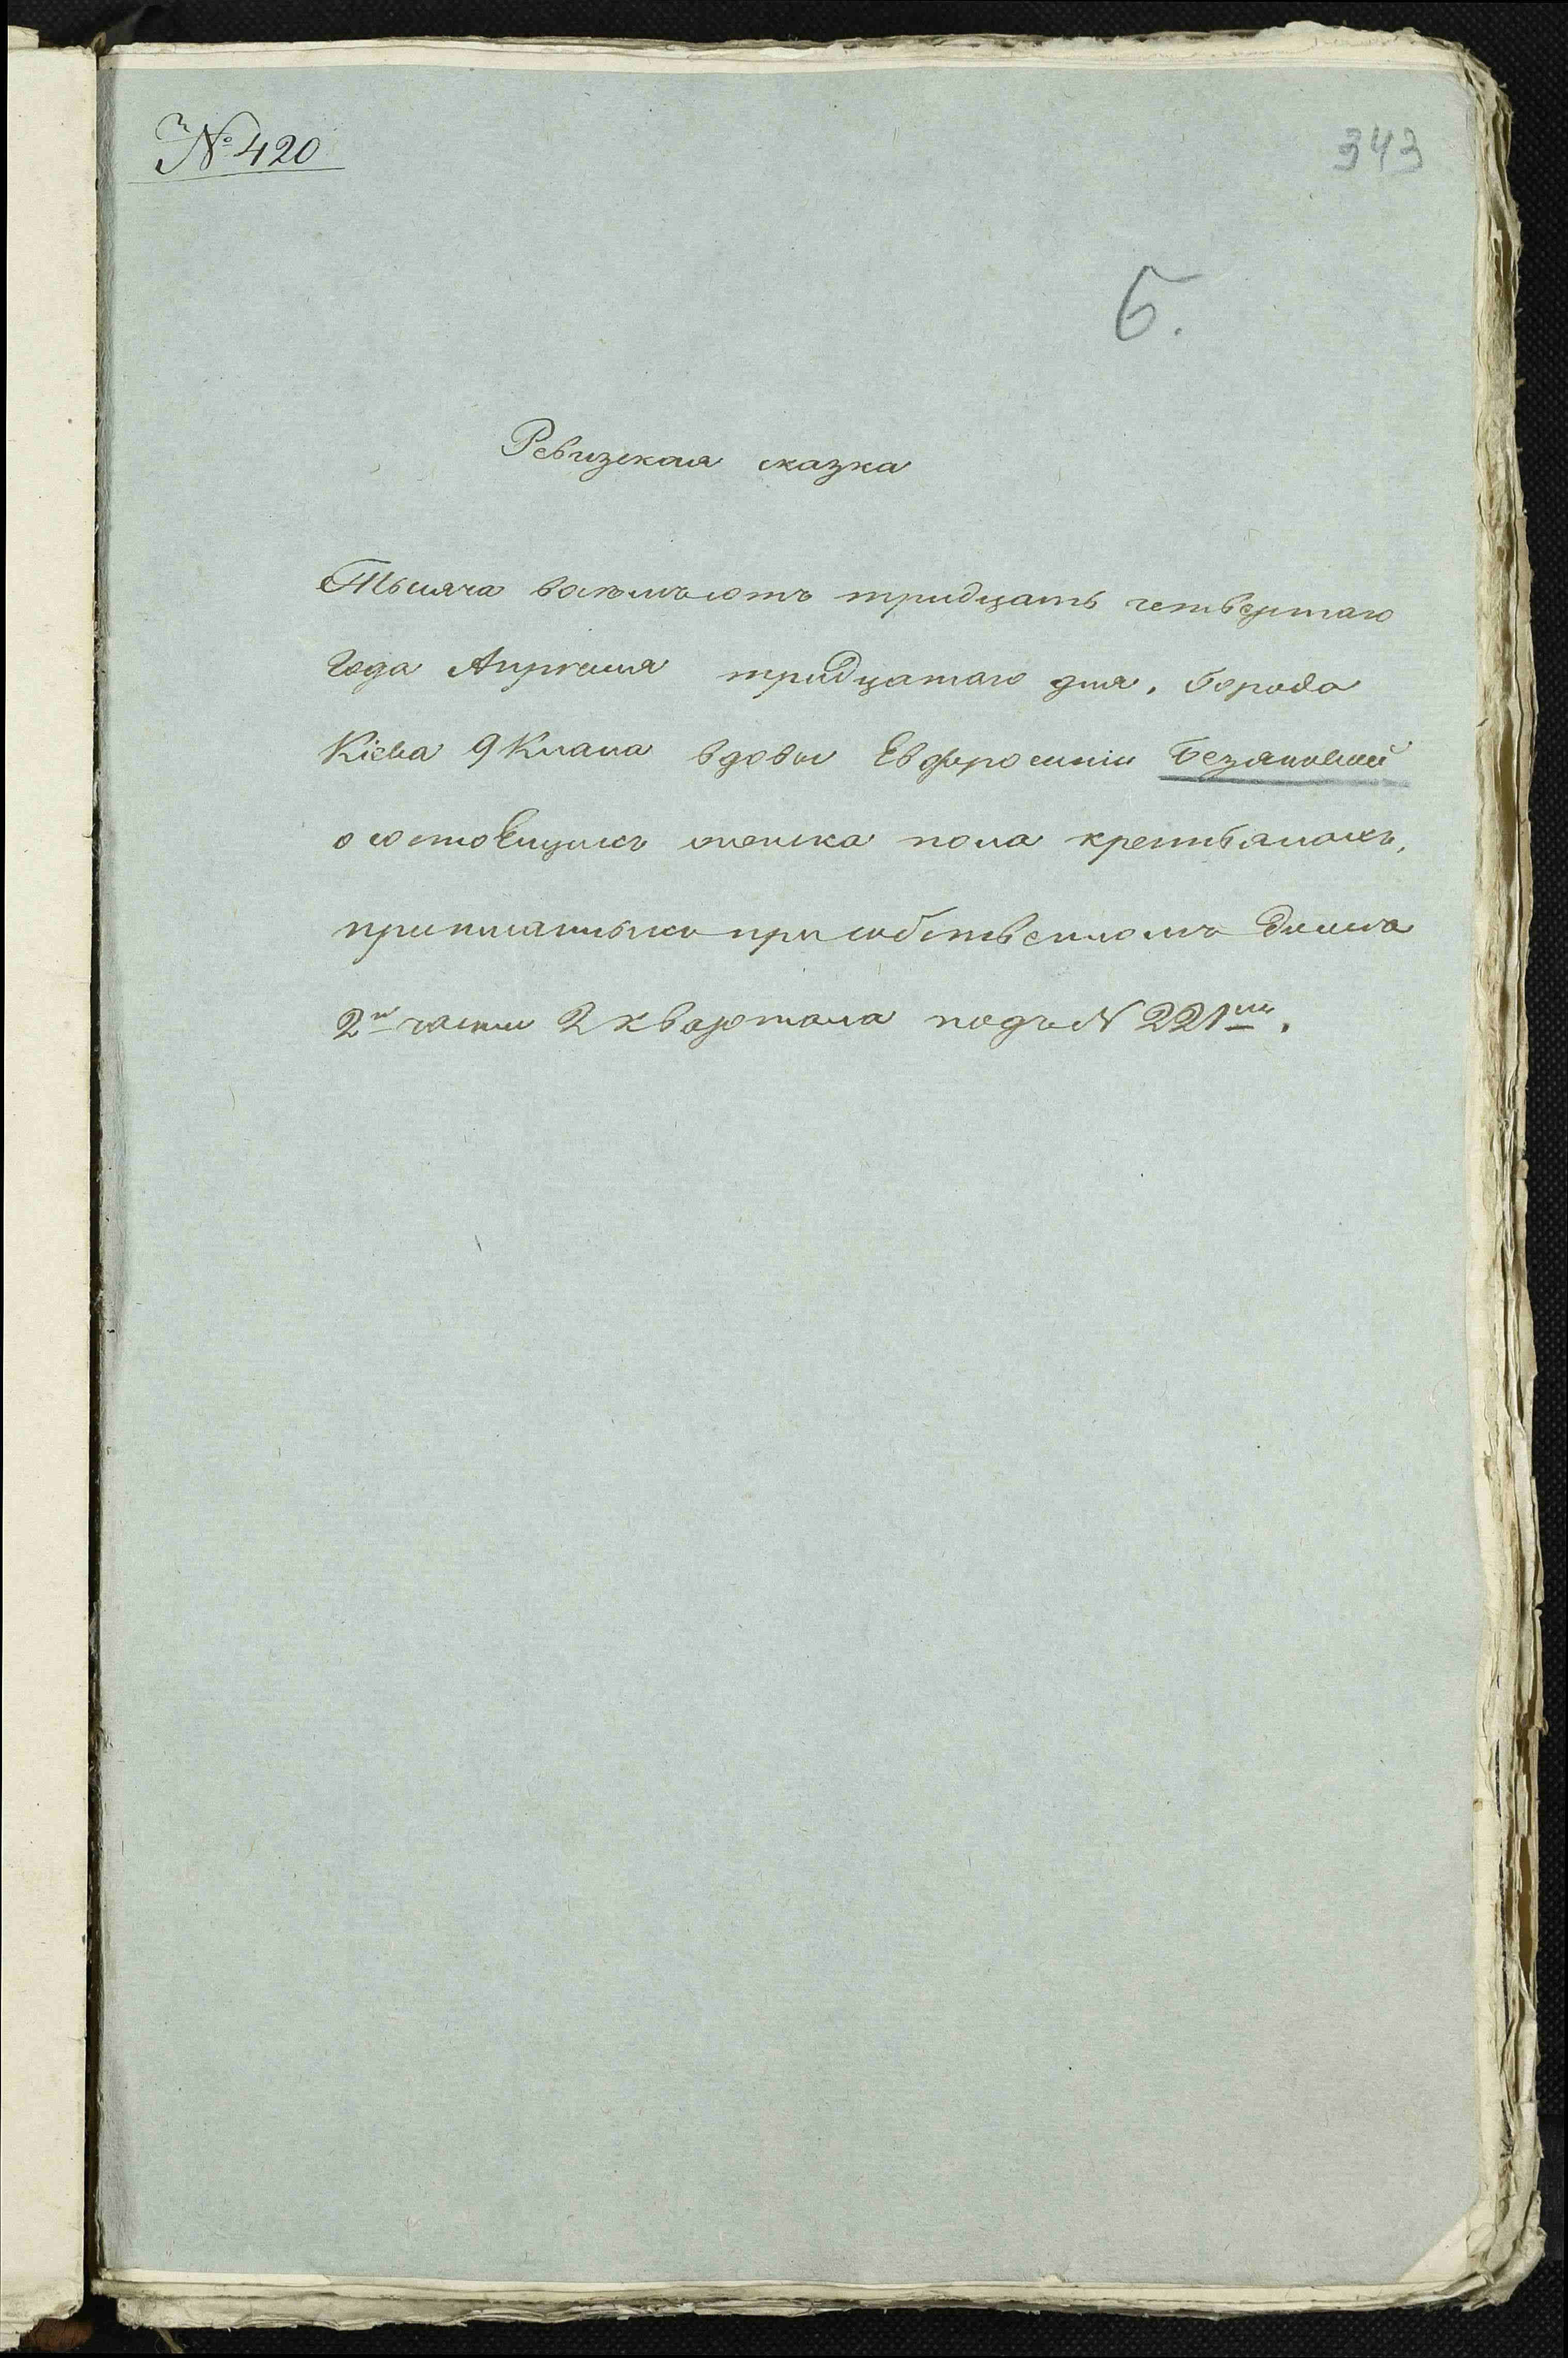 № 420
343
Б.
Ревизская сказка
Тысяча восемьсотъ тридцать четвертаго
Года Апреля тридцатаго дня. Города
Кіева 9 Класа вдовы Евфросиніи Безяковой
о состоящихъ женска пола крестьянахъ,
приписанныхъ при собственномъ домѣ
2й части 2 квартала подъ N 221мъ.